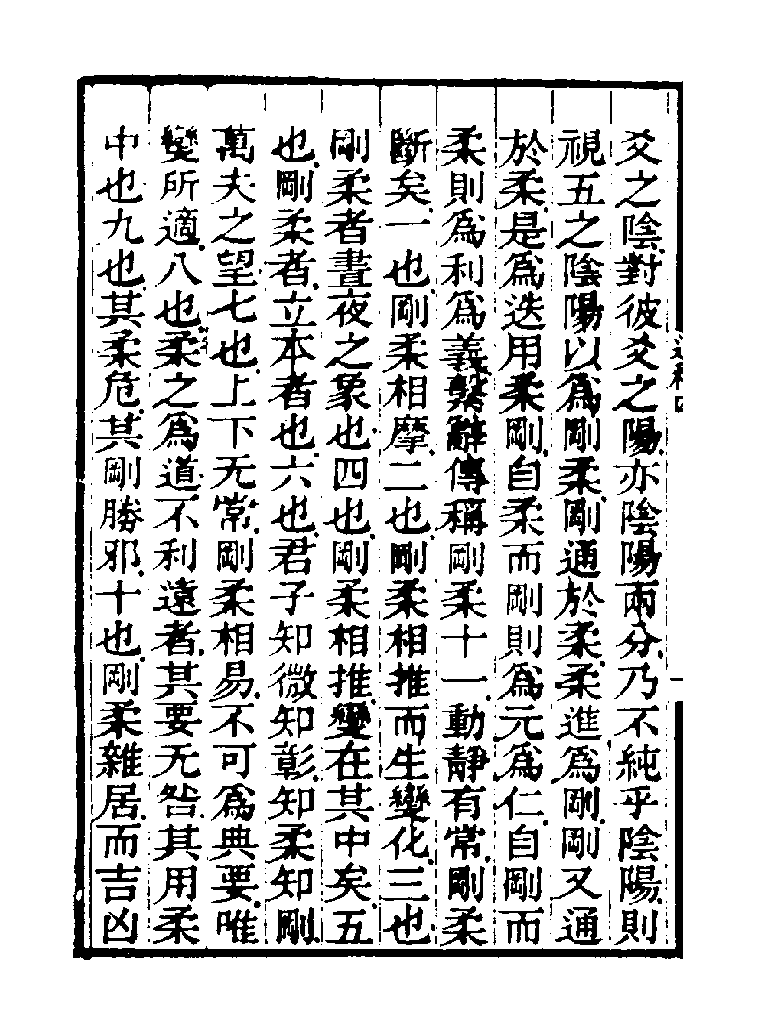 爻之陰對彼爻之陽亦陰陽兩分乃不純乎陰陽則
視五之陰陽以爲剛柔剛通於柔柔進爲剛剛又通
於柔是爲迭用柔剛自柔而剛則爲元爲仁自剛而
柔則爲利爲義繫辭傳稱剛柔十一動靜有常剛柔
斷矣一也剛柔相摩二也剛柔相推而生變化三也
剛柔者晝夜之象也四也剛柔相推變在其中矣五
也剛柔者立本者也六也君子知微知彰知柔知剛
萬夫之望七也上下无常剛柔相易不可爲典要唯
變所適八也柔之爲道不利遠者其要无咎其用柔
中也九也其柔危其剛勝邪十也剛柔雜居而吉凶